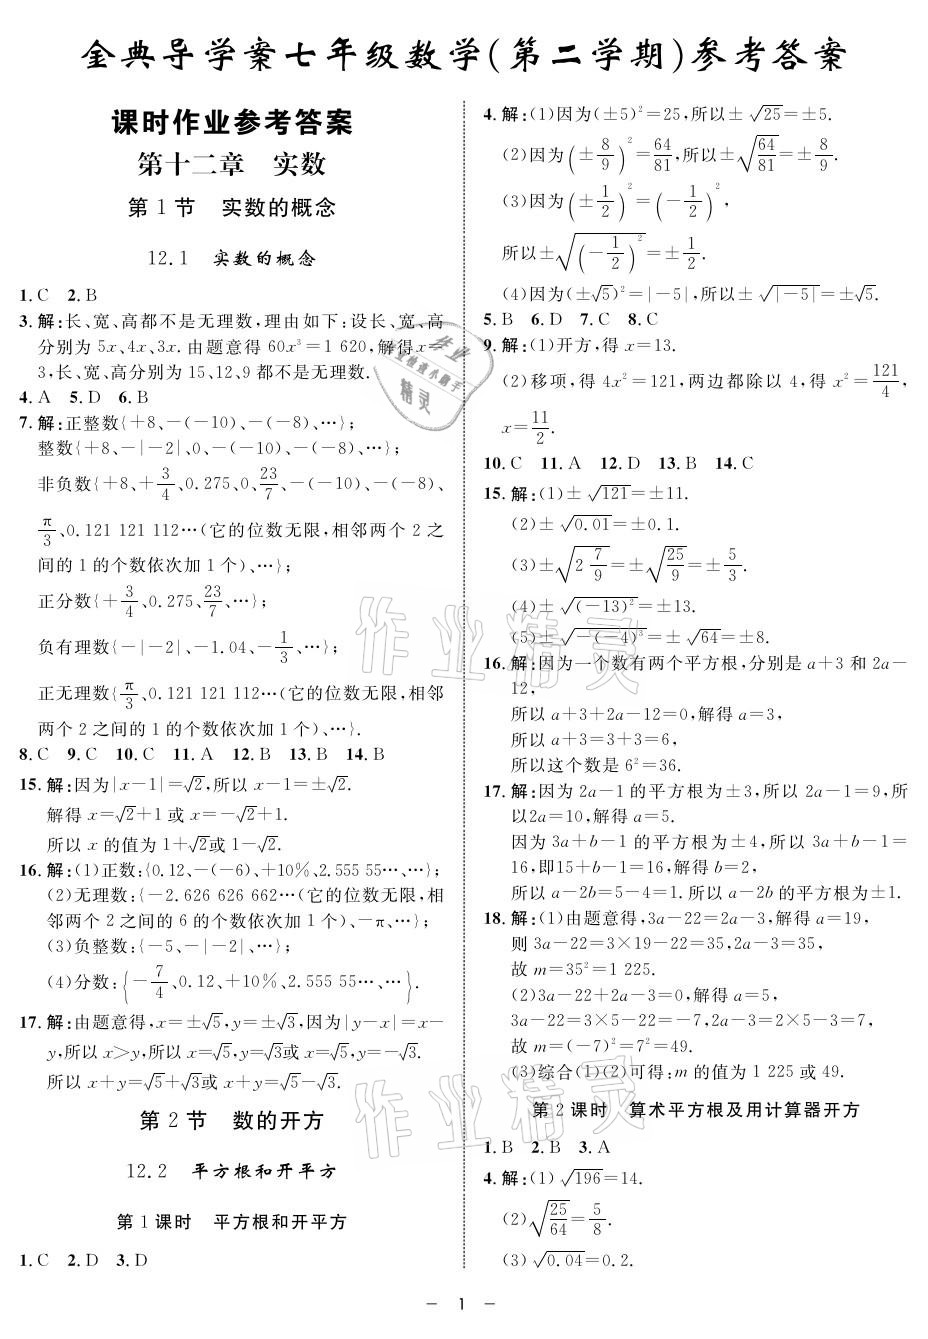 金典导学案七年级数学(第二学期)参考答案
课时作业参考答案
第十二章 实数
第1节 实数的概念
12.1 实数的概念
1.C 2.B
3.解:长、宽、高都不是无理数,理由如下:设长、宽、高
分别为 5x、4x、3x. 由题意得 60x³=1 620,解得 x=
3,长、宽、高分别为 15、12、9 都不是无理数.
4.A 5.D 6.B
7.解:正整数{+8、-(-10)、-(-8)、…};
整数{+8、-|-2|、0、-(-10)、-(-8)、…};
非负数{+8、+3/4、0.275、0、23/7、-(-10)、-(-8)、
π/3、0.121 121 112…(它的位数无限,相邻两个 2 之
间的 1 的个数依次加 1 个)、…};
正分数{+3/4、0.275、23/7、…};
负有理数{-|-2|、-1.04、-1/3、…};
正无理数{π/3、0.121 121 112…(它的位数无限,相邻
两个 2 之间的 1 的个数依次加 1 个)、…}.
8.C 9.C 10.C 11.A 12.B 13.B 14.B
15.解:因为|x-1|=√2,所以 x-1=±√2.
解得 x=√2+1 或 x=-√2+1.
所以 x 的值为 1+√2或 1-√2.
16.解:(1)正数:{0.12、-(-6)、+10%、2.555 55…、…};
(2)无理数:{-2.626 626 662…(它的位数无限,相
邻两个 2 之间的 6 的个数依次加 1 个)、-π、…};
(3)负整数:{-5、-|-2|、…};
(4)分数:{-7/4、0.12、+10%、2.555 55…、…}.
17.解:由题意得,x=±√5,y=±√3,因为|y-x|=x-
y,所以 x>y,所以 x=√5,y=√3或 x=√5,y=-√3.
所以 x+y=√5+√3或 x+y=√5-√3.
第2节 数的开方
12.2 平方根和开平方
第1课时 平方根和开平方
1.C 2.D 3.D
4.解:(1)因为(±5)²=25,所以±√25=±5.
(2)因为(±8/9)²=64/81,所以±√(64/81)=±8/9.
(3)因为(±1/2)²=(-1/2)²,
所以±√((-1/2)²)=±1/2.
(4)因为(±√5)²=|-5|,所以±√|-5|=±√5.
5.B 6.D 7.C 8.C
9.解:(1)开方,得 x=13.
(2)移项,得 4x²=121,两边都除以 4,得 x²=121/4,
x=11/2.
10.C 11.A 12.D 13.B 14.C
15.解:(1)±√121=±11.
(2)±√0.01=±0.1.
(3)±√(2 7/9)=±√(25/9)=±5/3.
(4)±√((-13)²)=±13.
(5)±√(-(-4)³)=±√64=±8.
16.解:因为一个数有两个平方根,分别是 a+3 和 2a-
12,
所以 a+3+2a-12=0,解得 a=3,
所以 a+3=3+3=6,
所以这个数是 6²=36.
17.解:因为 2a-1 的平方根为±3,所以 2a-1=9,所
以2a=10,解得 a=5.
因为 3a+b-1 的平方根为±4,所以 3a+b-1=
16,即15+b-1=16,解得 b=2,
所以 a-2b=5-4=1. 所以 a-2b 的平方根为±1.
18.解:(1)由题意得,3a-22=2a-3,解得 a=19,
则 3a-22=3×19-22=35,2a-3=35,
故 m=35²=1 225.
(2)3a-22+2a-3=0,解得 a=5,
3a-22=3×5-22=-7,2a-3=2×5-3=7,
故 m=(-7)²=7²=49.
(3)综合(1)(2)可得:m 的值为 1 225 或 49.
第2课时 算术平方根及用计算器开方
1.B 2.B 3.A
4.解:(1)√196=14.
(2)√(25/64)=5/8.
(3)√0.04=0.2.
- 1 -
作业精灵
作业精灵